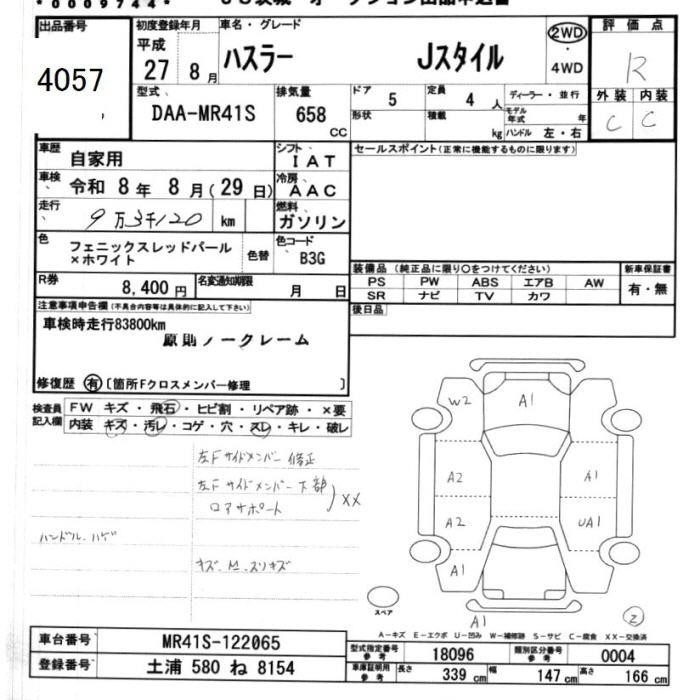 *0009744**
出品番号
4057
初度登録年月
平成
27 8月
車名・グレード
ハスラー Jスタイル
2WD
・
4WD
評価点
R
外装 内装
C C
型式
DAA-MR41S
排気量
658
CC
ドア
5
定員
4人
形状
積載
kg
ディーラー・並行
モデル年式
年
ハンドル 左・右
車歴
自家用
シフト
IAT
セールスポイント(正常に機能するものに限ります)
車検
令和 8年 8月(29日)
冷房
AAC
走行
9万3千120 km
燃料
ガソリン
色
フェニックスレッドパール
×ホワイト
色替
色コード
B3G
装備品 (純正品に限り○をつけてください)
PS PW ABS エアB AW
SR ナビ TV カワ
新車保証書
有・無
R券
8,400円
名変通知期限
月 日
後日品
注意事項申告欄(不具合内容等は具体的に記入して下さい)
車検時走行83800km
原則ノークレーム
修復歴 有 〔箇所Fクロスメンバー修理 〕
検査員
記入欄
FW キズ・飛石・ヒビ割・リペア跡・×要
内装 キズ・汚レ・コゲ・穴・スレ・キレ・破レ
左Fサイドメンバー修正
左Fサイドメンバー下部
ロアサポート
XX
ハンドル、ハゲ
キズ、M、スリキズ
W2
A1
A2
A1
A2
UA1
A1
A1
2
スペア
A-キズ E-エクボ U-凹み W-補修跡 S-サビ C-腐食 XX-交換済
車台番号
MR41S-122065
登録番号
土浦 580 ね 8154
型式指定番号
参考
18096
類別区分番号
参考
0004
車庫証明用
参考
長さ
339 cm
幅
147 cm
高さ
166 cm